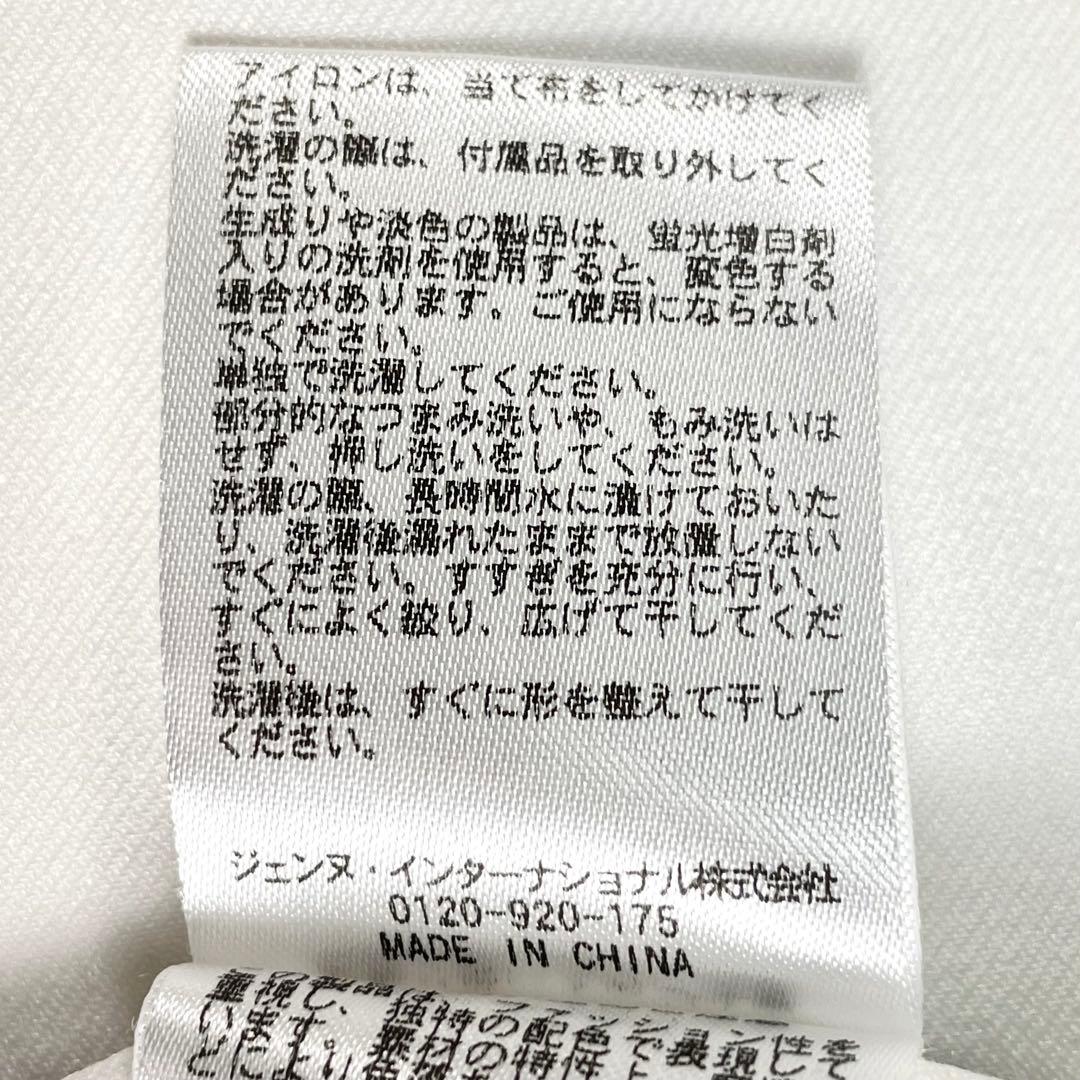 アイロンは、当て布をしてかけてく
ださい。
洗濯の際は、付属品を取り外してく
ださい。
生成りや淡色の製品は、蛍光増白剤
入りの洗剤を使用すると、変色する
場合があります。ご使用にならない
でください。
単独で洗濯してください。
部分的なつまみ洗いや、もみ洗いは
せず、押し洗いをしてください。
洗濯の際、長時間水に漬けておいた
り、洗濯後濡れたままで放置しない
でください。すすぎを充分に行い、
すぐによく絞り、広げて干してくだ
さい。
洗濯後は、すぐに形を整えて干して
ください。
ジェンヌ・インターナショナル株式会社
0120-920-175
MADE IN CHINA
重視し、独特の配色で表現して
います。素材の特性